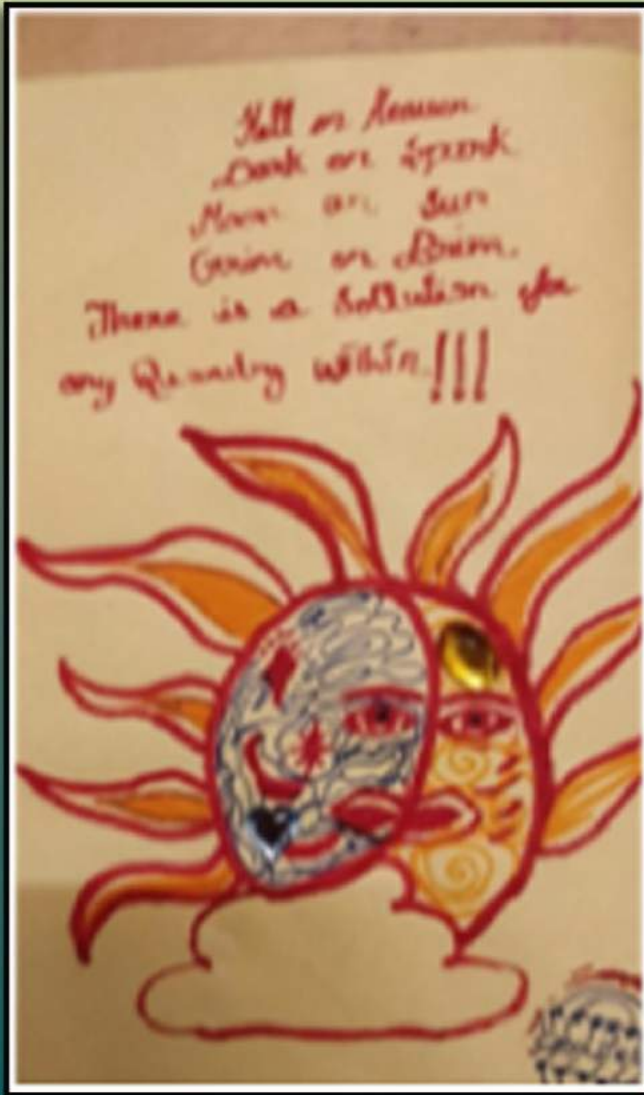 Hell or Heaven
Dark or Spunk
Moon or Sun
Grim or Brim.
There is a Sollution for
any Quandry within!!!